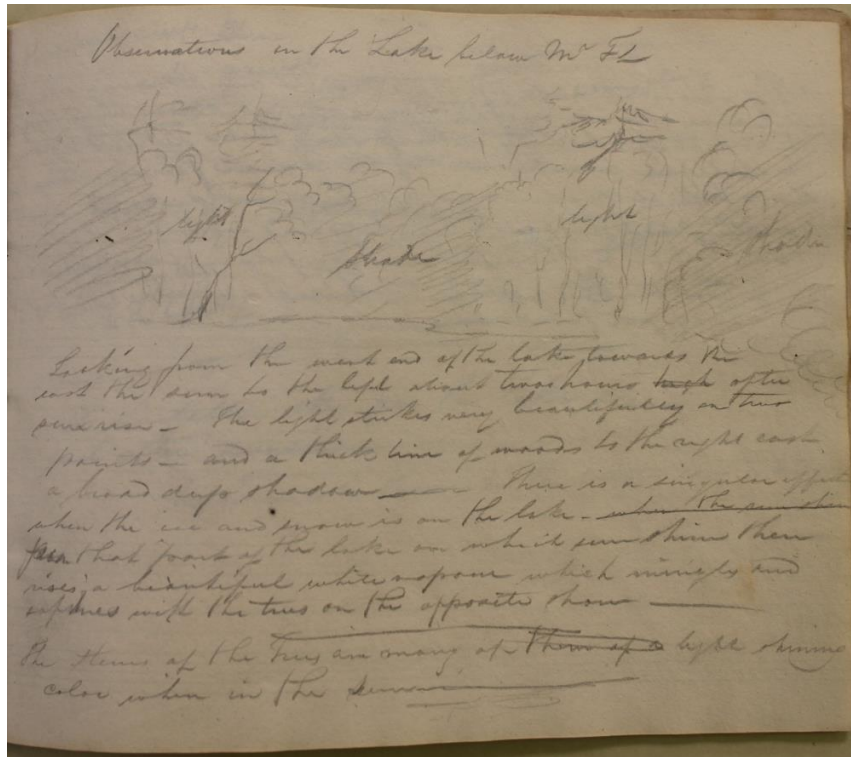 Observations on the Lake below Mr FL
light
light
light
Shade
Shade
Looking from the west end of the lake, towards the
east the sun to the left about two hours high after
sun rise – The light strikes very beautifully on two
points – and a thick line of woods to the right cast
a broad deep shadow — There is a singular effect
when the ice and snow is on the lake – when the sun shines
from that part of the lake on which sun shine there
rises a beautiful white vapour which mingles and
softens with the trees on the opposite shore —
The stems of the trees are many of them of a light shining
color when in the